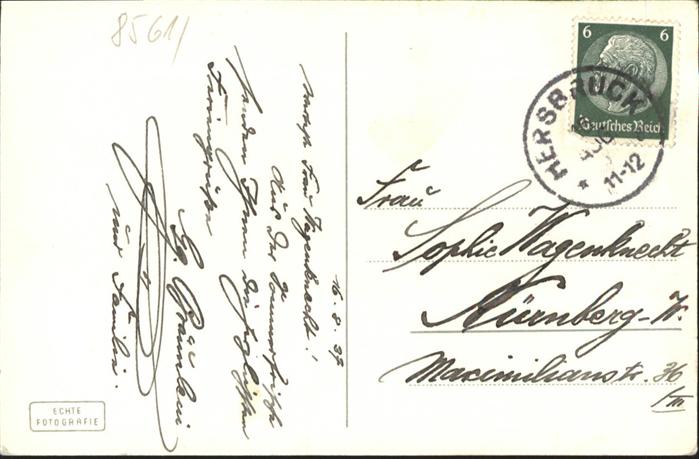 8561/
16.8.37
Werteste Frau Wagenknecht!
Aus der Sommerfrische
senden Ihnen die herzlichsten
Feriengrüße
Gg. Bräunlein
und Familie.
ECHTE
FOTOGRAFIE
6 6
Deutsches Reich
HERSBRUCK
11-12
Frau
Sophie Wagenknecht
Nürnberg-W.
Maximilianstr. 36
/III